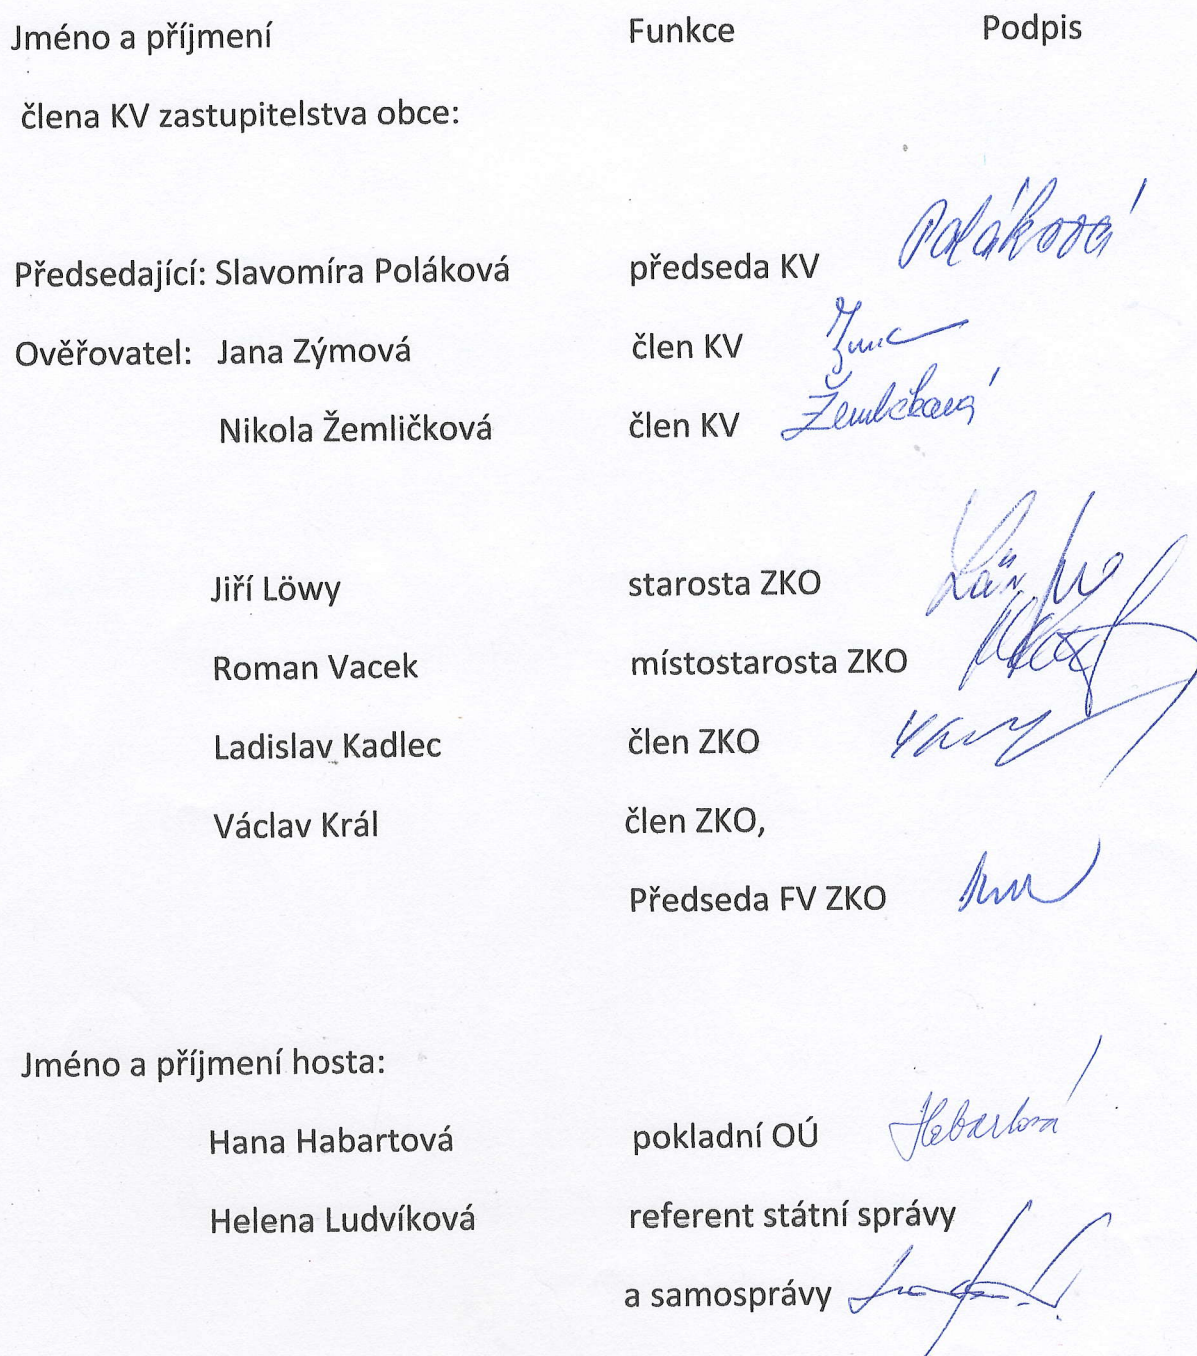 Jméno a příjmení Funkce Podpis
člena KV zastupitelstva obce:
Poláková
Předsedající: Slavomíra Poláková předseda KV
Ověřovatel: Jana Zýmová člen KV
Nikola Žemličková člen KV Žemličková
Jiří Löwy starosta ZKO
Roman Vacek místostarosta ZKO
Ladislav Kadlec člen ZKO
Václav Král člen ZKO,
Předseda FV ZKO
Jméno a příjmení hosta:
Hana Habartová pokladní OÚ Habartová
Helena Ludvíková referent státní správy
a samosprávy